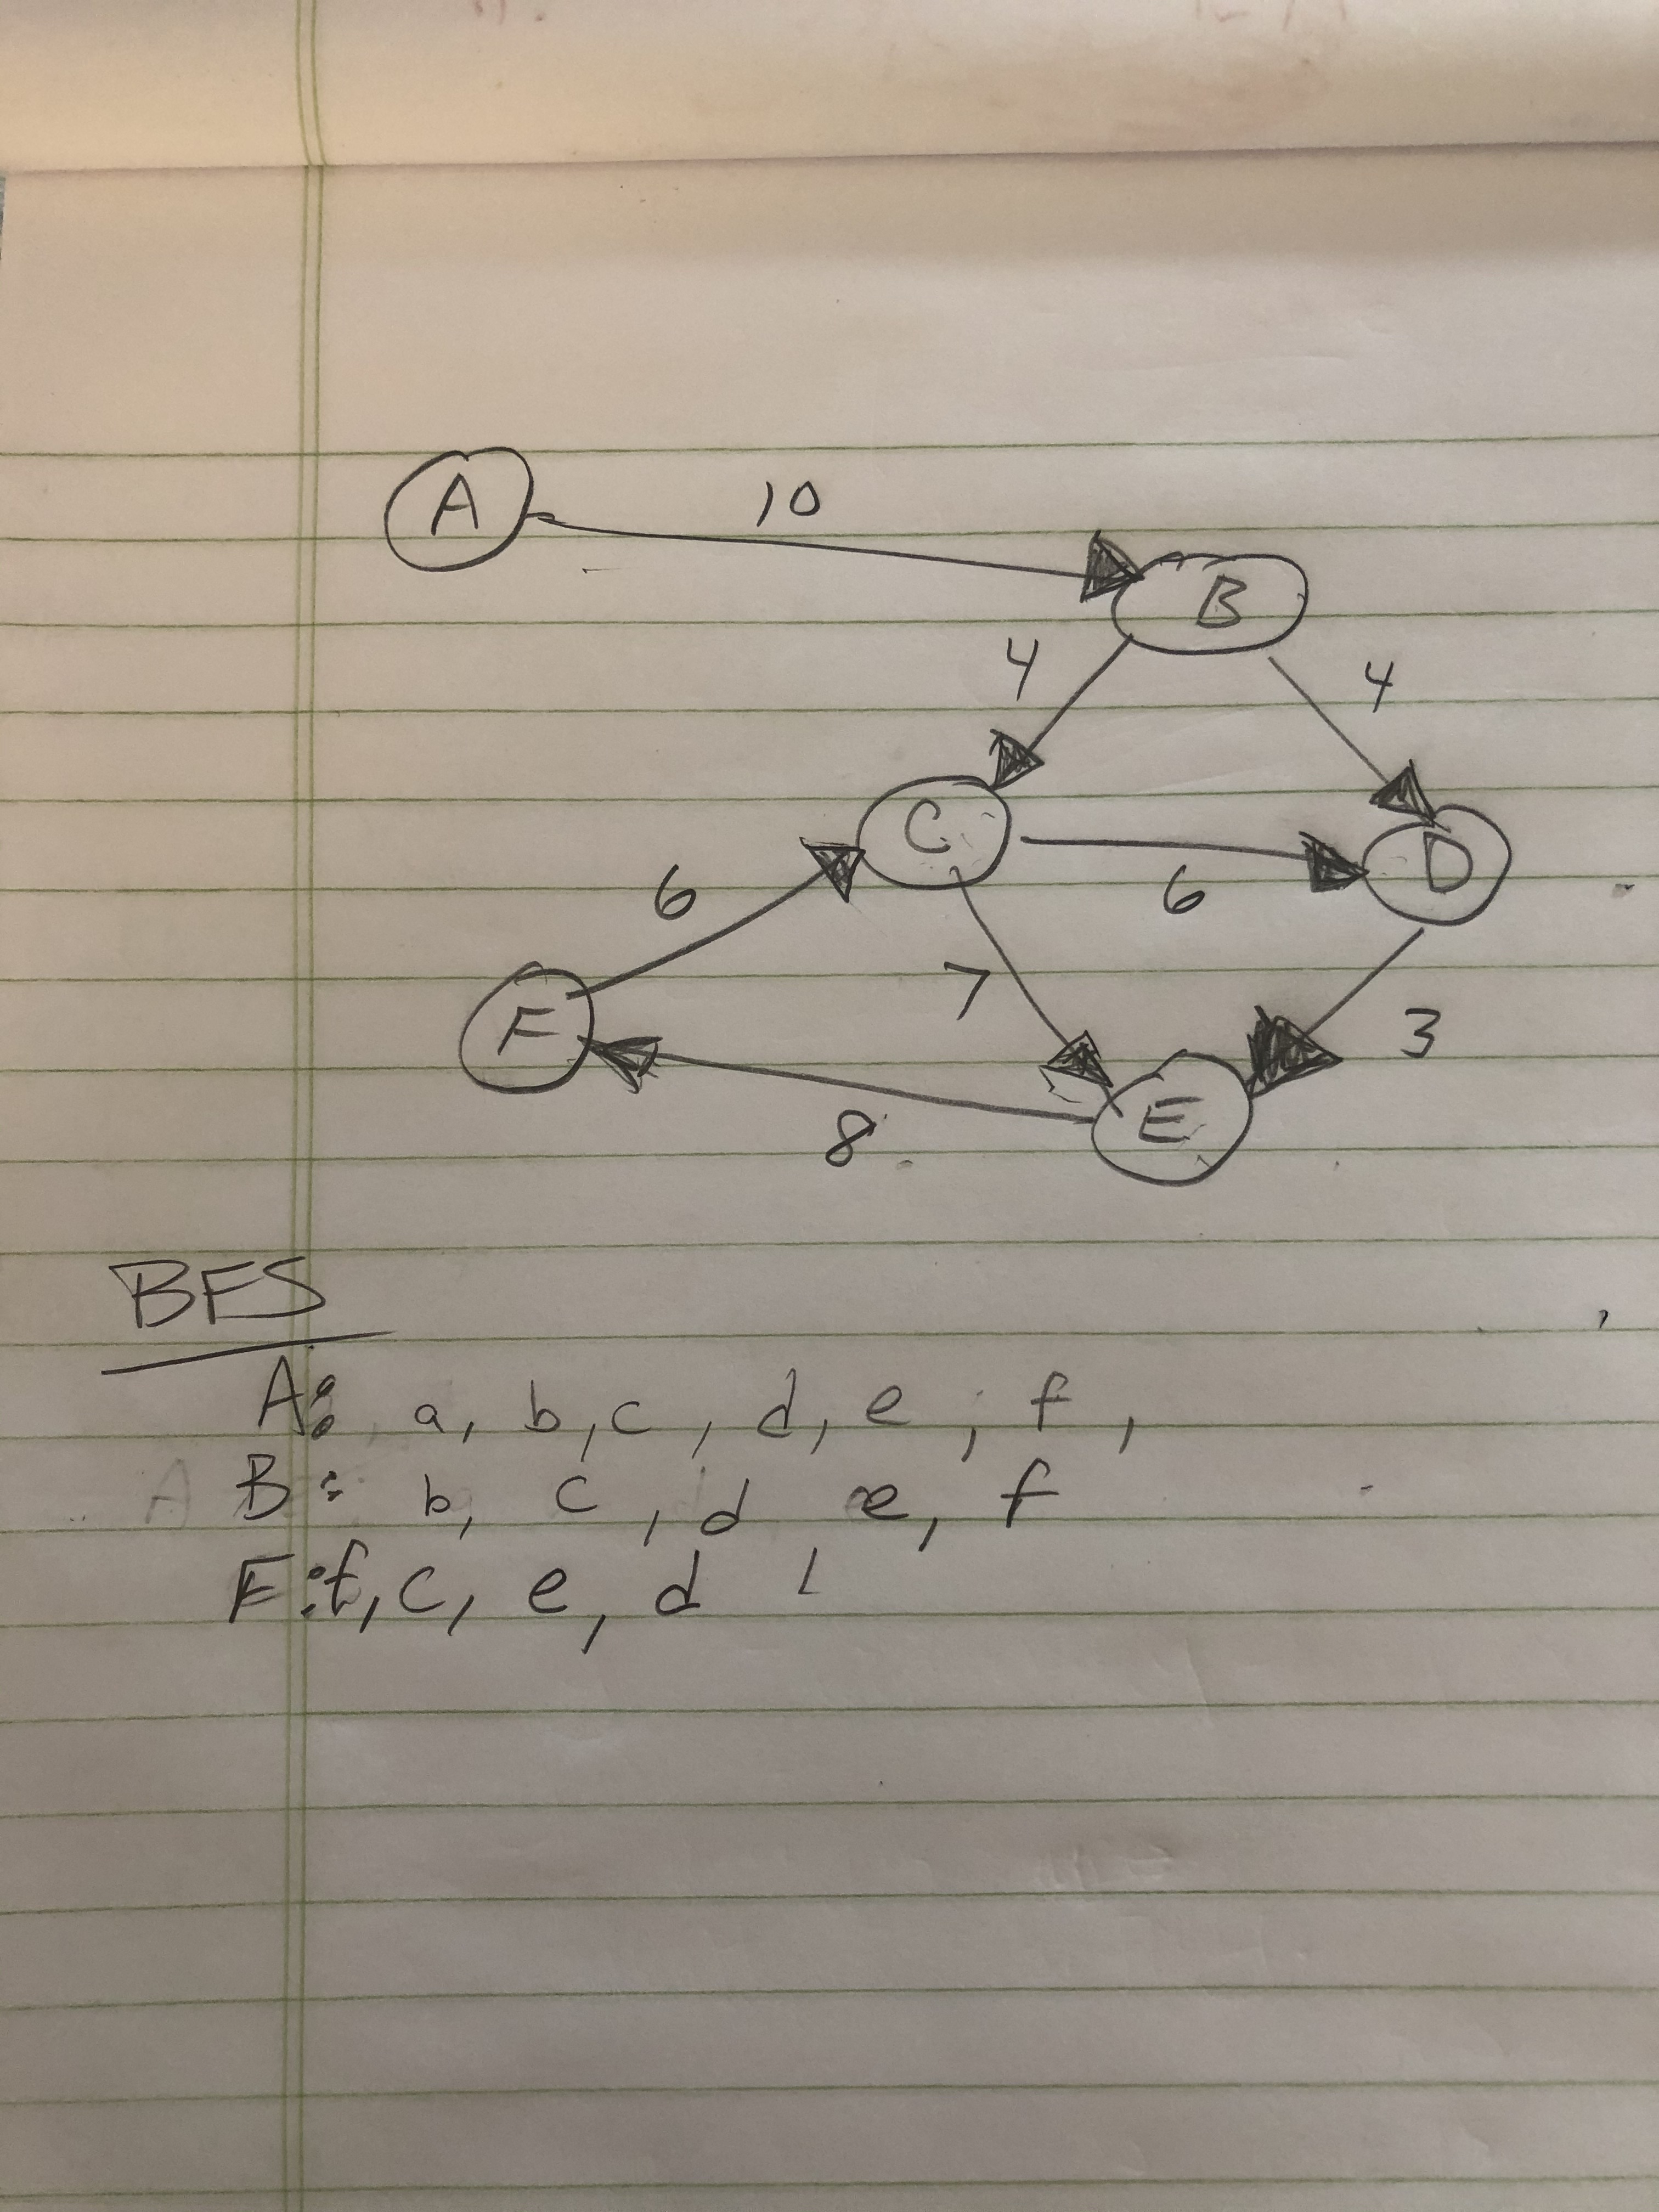 A
10
B
4
4
C
D
6
6
F
7
3
E
8
BFS
A: a, b, c, d, e, f,
B: b, c, d e, f
F: f, c, e, d